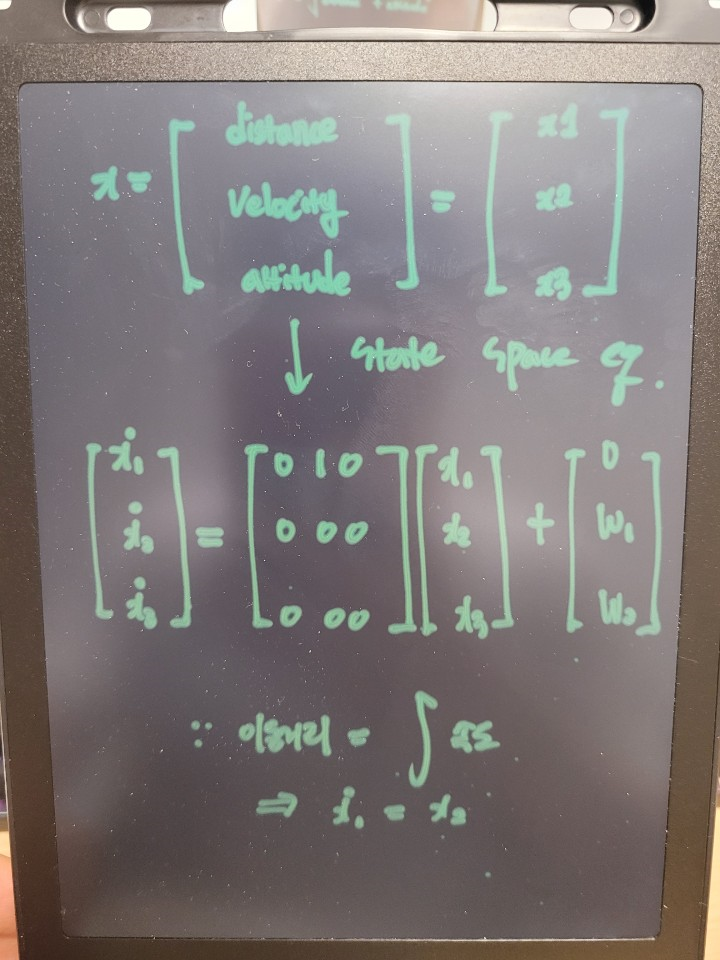 x = [distance velocity attitude] = [x1 x2 x3]
↓ State Space eq.
[ẋ₁ ẋ₂ ẋ₃] = [0 1 0 0 0 0 0 0 0][x₁ x₂ x₃] + [0 w₁ w₂]
∵ 이동거리 = ∫ 속도
⇒ ẋ₁ = x₂